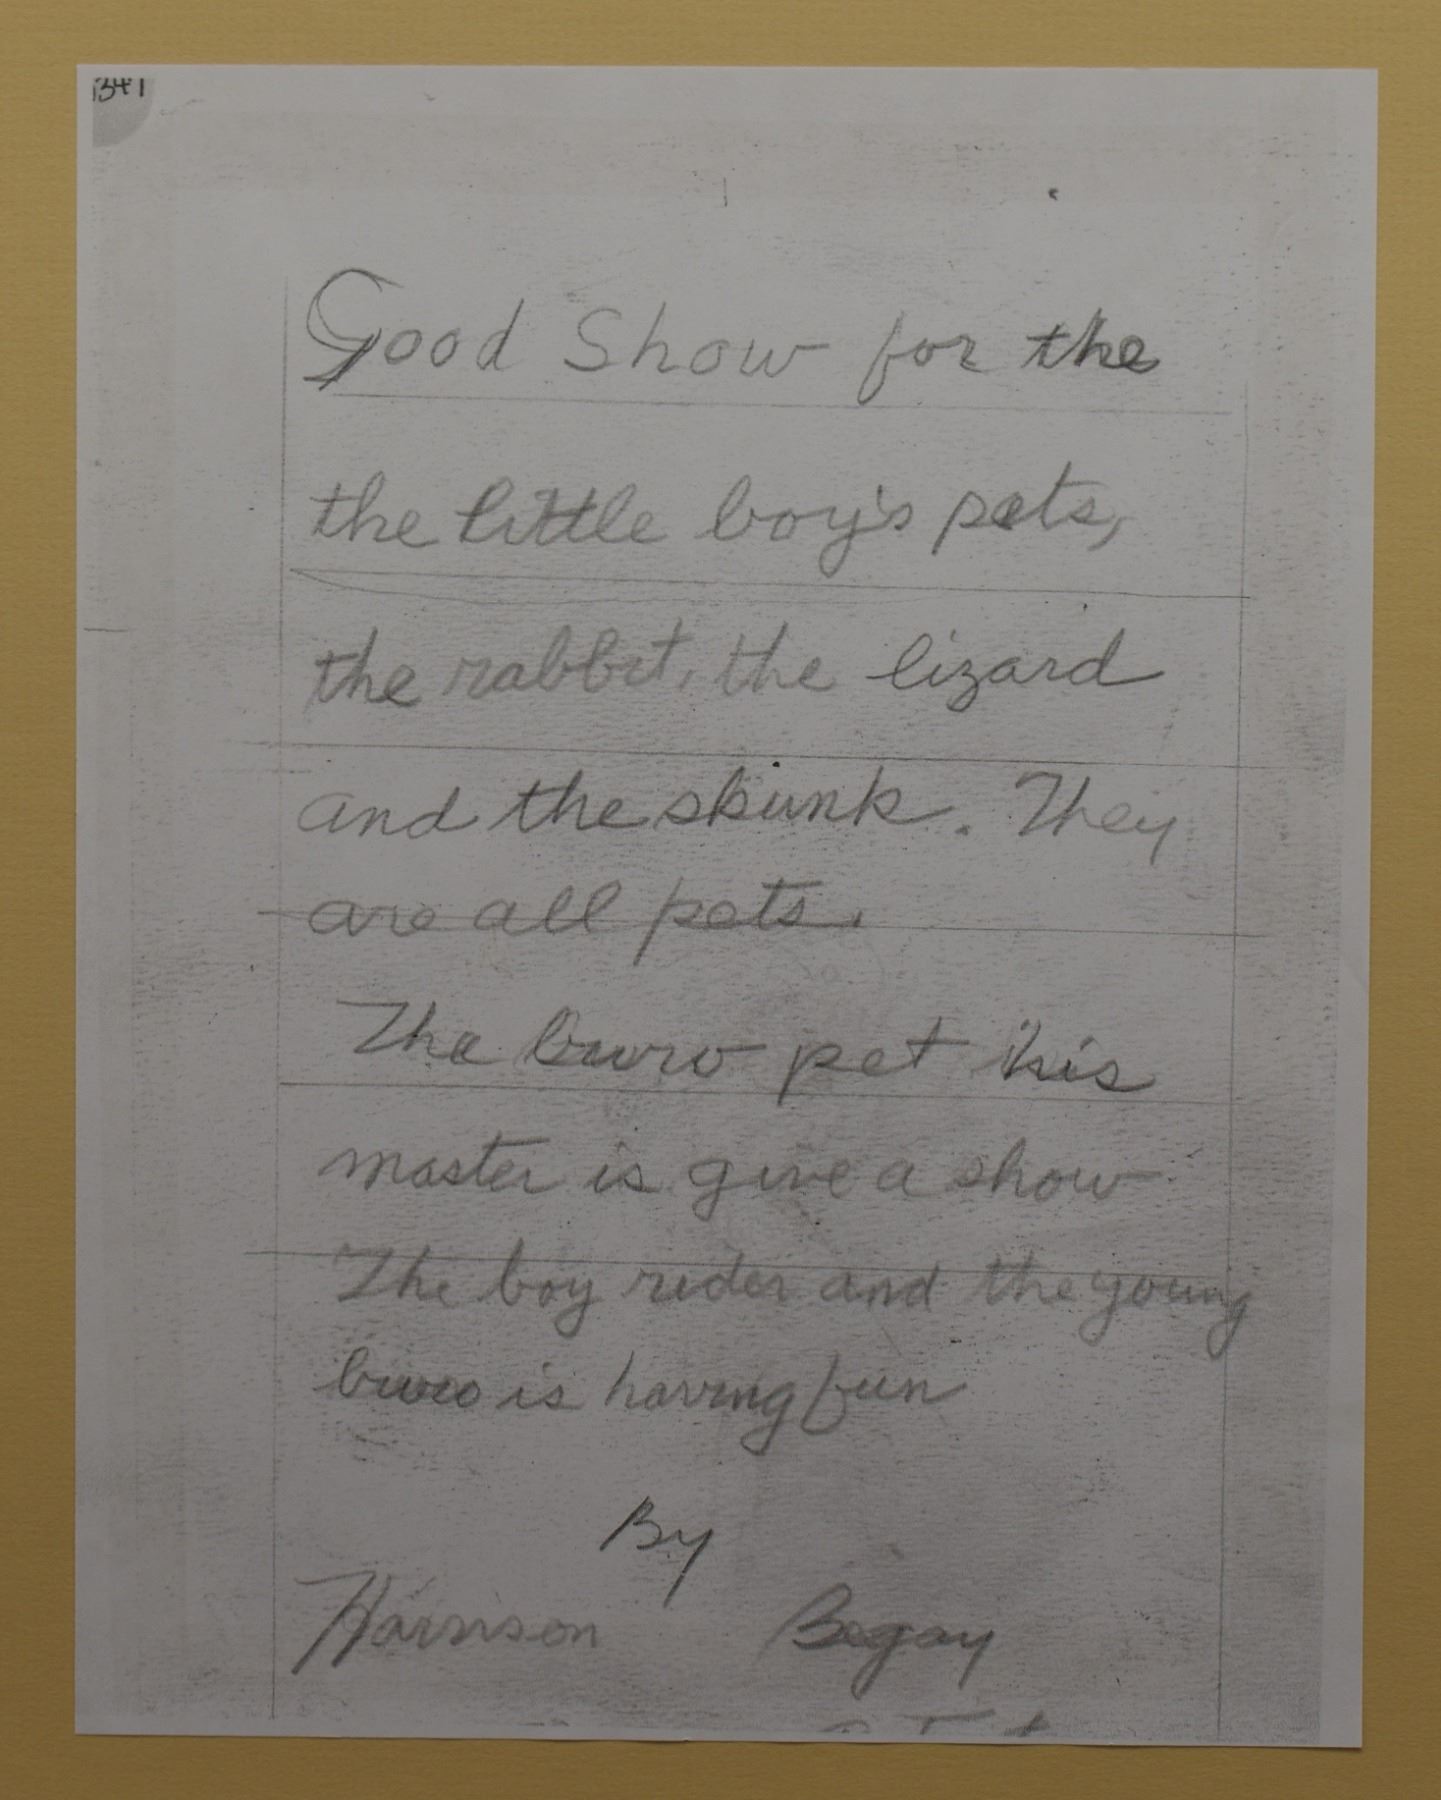 1341
Good Show for the
the little boy's pets,
the rabbit, the lizard
and the skunk. They
are all pets.
The burro pet his
master is give a show
The boy rider and the young
burro is having fun
By
Harrison Begay